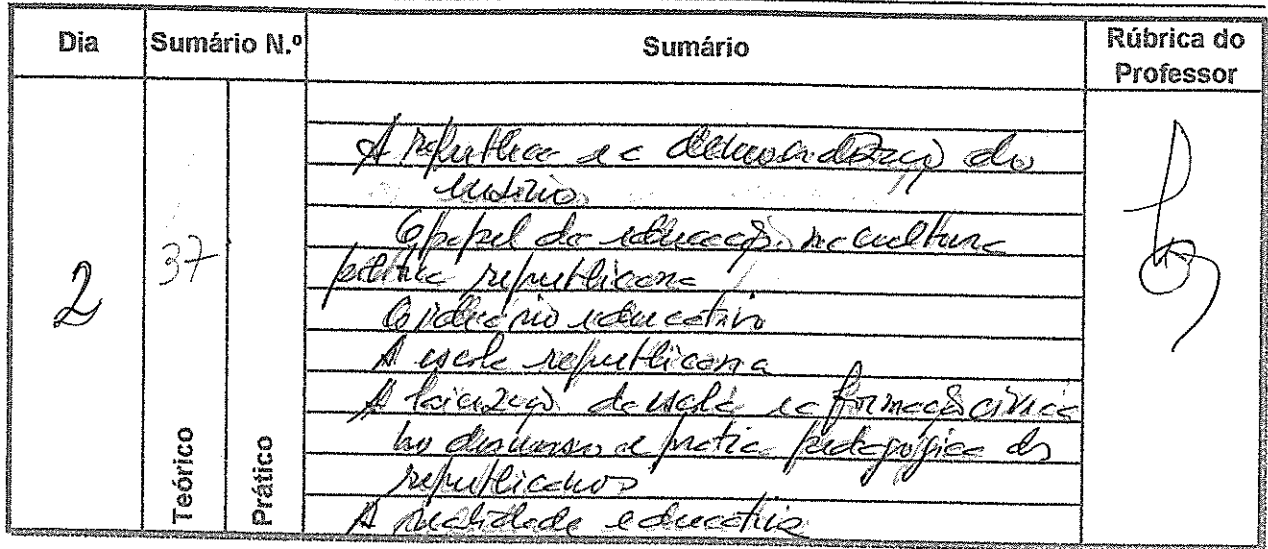 Dia Sumário N.º Sumário Rúbrica do Professor
Teórico Prático
2 37
A republica e a democratização do
ensino
O papel da educação na cultura
politica republicana
O ideário educativo
A escola republicana
A laicização da escola e a formação cívica
no discurso e pratica pedagógica dos
republicanos
A realidade educativa